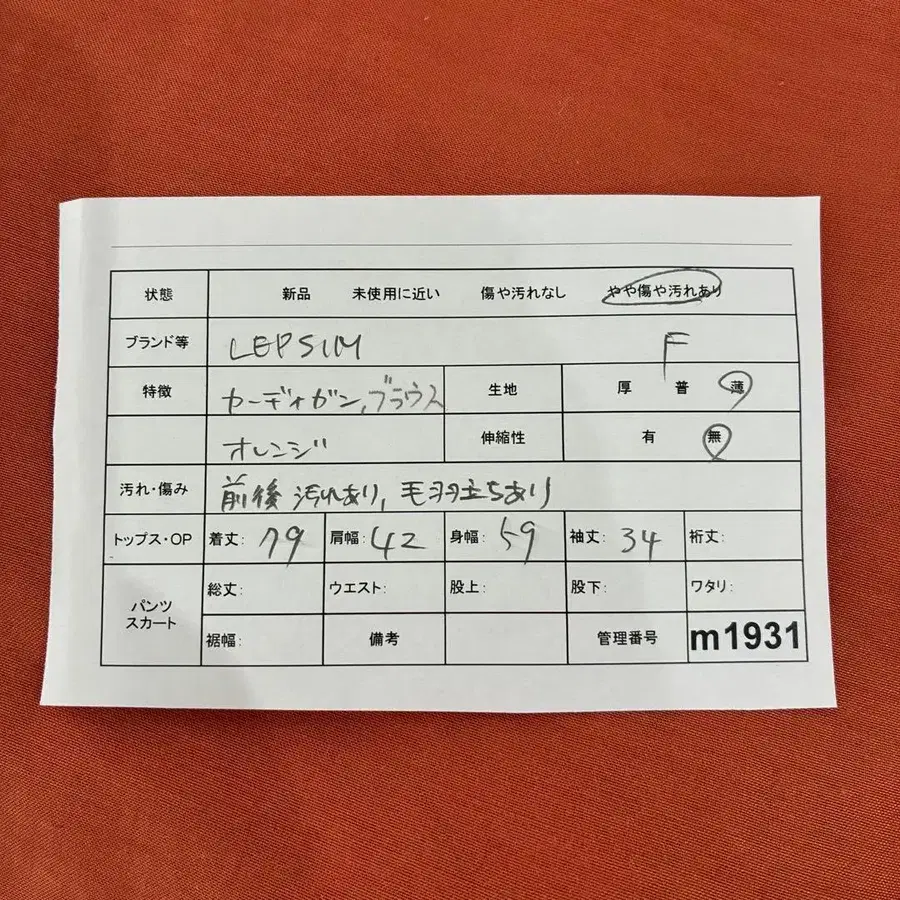 状態 新品 未使用に近い 傷や汚れなし やや傷や汚れあり
ブランド等 LEPSIM F
特徴 カーディガン,ブラウス 生地 厚 普 薄
オレンジ 伸縮性 有 無
汚れ・傷み 前後 汚れあり, 毛羽立ちあり
トップス・OP 着丈: 79 肩幅: 42 身幅: 59 袖丈: 34 裄丈:
パンツ スカート 総丈: ウエスト: 股上: 股下: ワタリ:
裾幅: 備考 管理番号 m1931